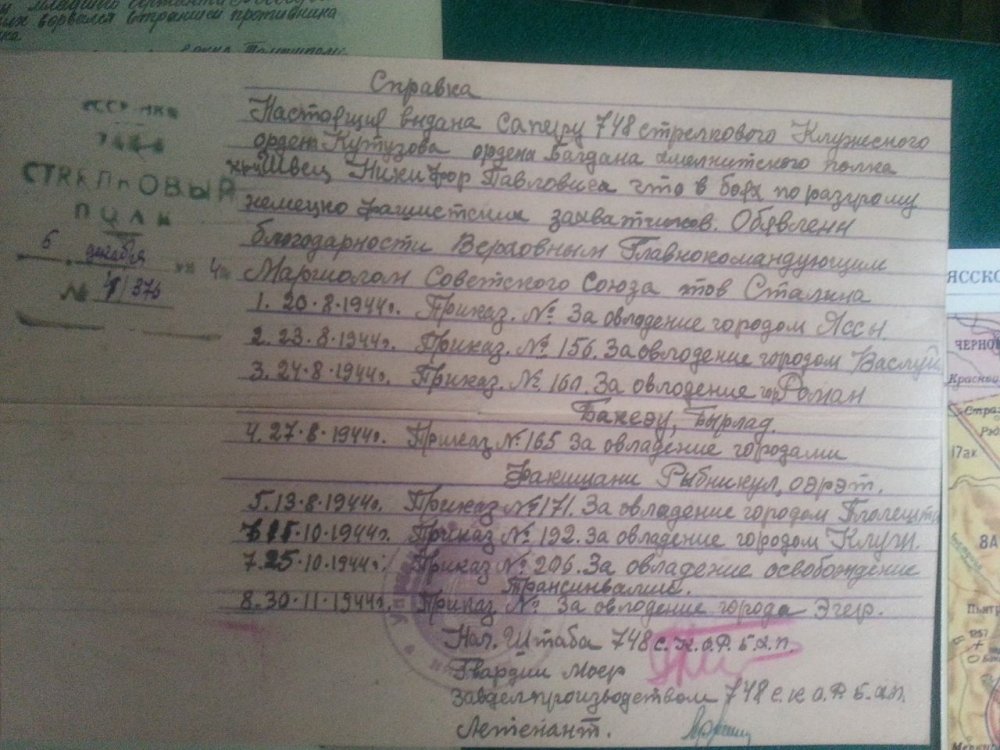 ворвался в траншеи противника
Справка
Настоящия выдана Саперу 748 стрелкового Клужесного
орден Кутузова ордена Багдана хмелнитского полка
Швец Никифор Павловича что в боях по разгрому
немецко фашистских захватчиков. Обявлени
благодарности Верховным Главнокомандующим
Маршолом Советского Союза тов Сталина
1. 20.8.1944г. Приказ. № За овладение городом Яссы.
2. 23.8.1944г. Приказ. № 156. За овлодение городом Васлуй
3. 24.8.1944г. Приказ. № 160. За овлодение гор Роман
Бакеэу, Бырлад.
4. 27.8.1944г. Приказ № 165 За овладение городами
Факишани Рыбникул, сэрэт.
5. 13.8.1944г. Приказ № 171. За овладение городом Плоешти
10.1944г. Приказ № 192. За овладение городом Клуж.
7. 25.10.1944г. Приказ № 206. За овладение освобождение
Трансинвалие.
8. 30.11.1944г. Приказ № За овлодение города Эгер.
Нач. Штаба 748 с.К.О.Р.Б.Х.П.
Гвардии Моер
Завделпроизводством 748 с.к о.Р. Б.хп
Летенант.
СТРЕЛКОВЫЙ
ПОЛК
6 декабря 4
№ 376
ЯССКО
ЧЕРНО
Красно
Стра
17ак
8А
Пьят
1257